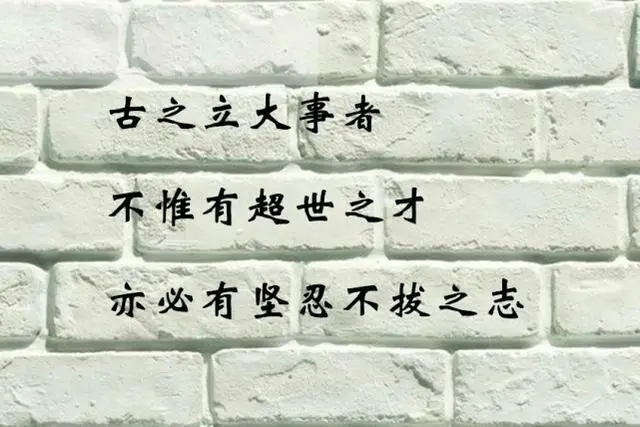 古之立大事者
不惟有超世之才
亦必有坚忍不拔之志